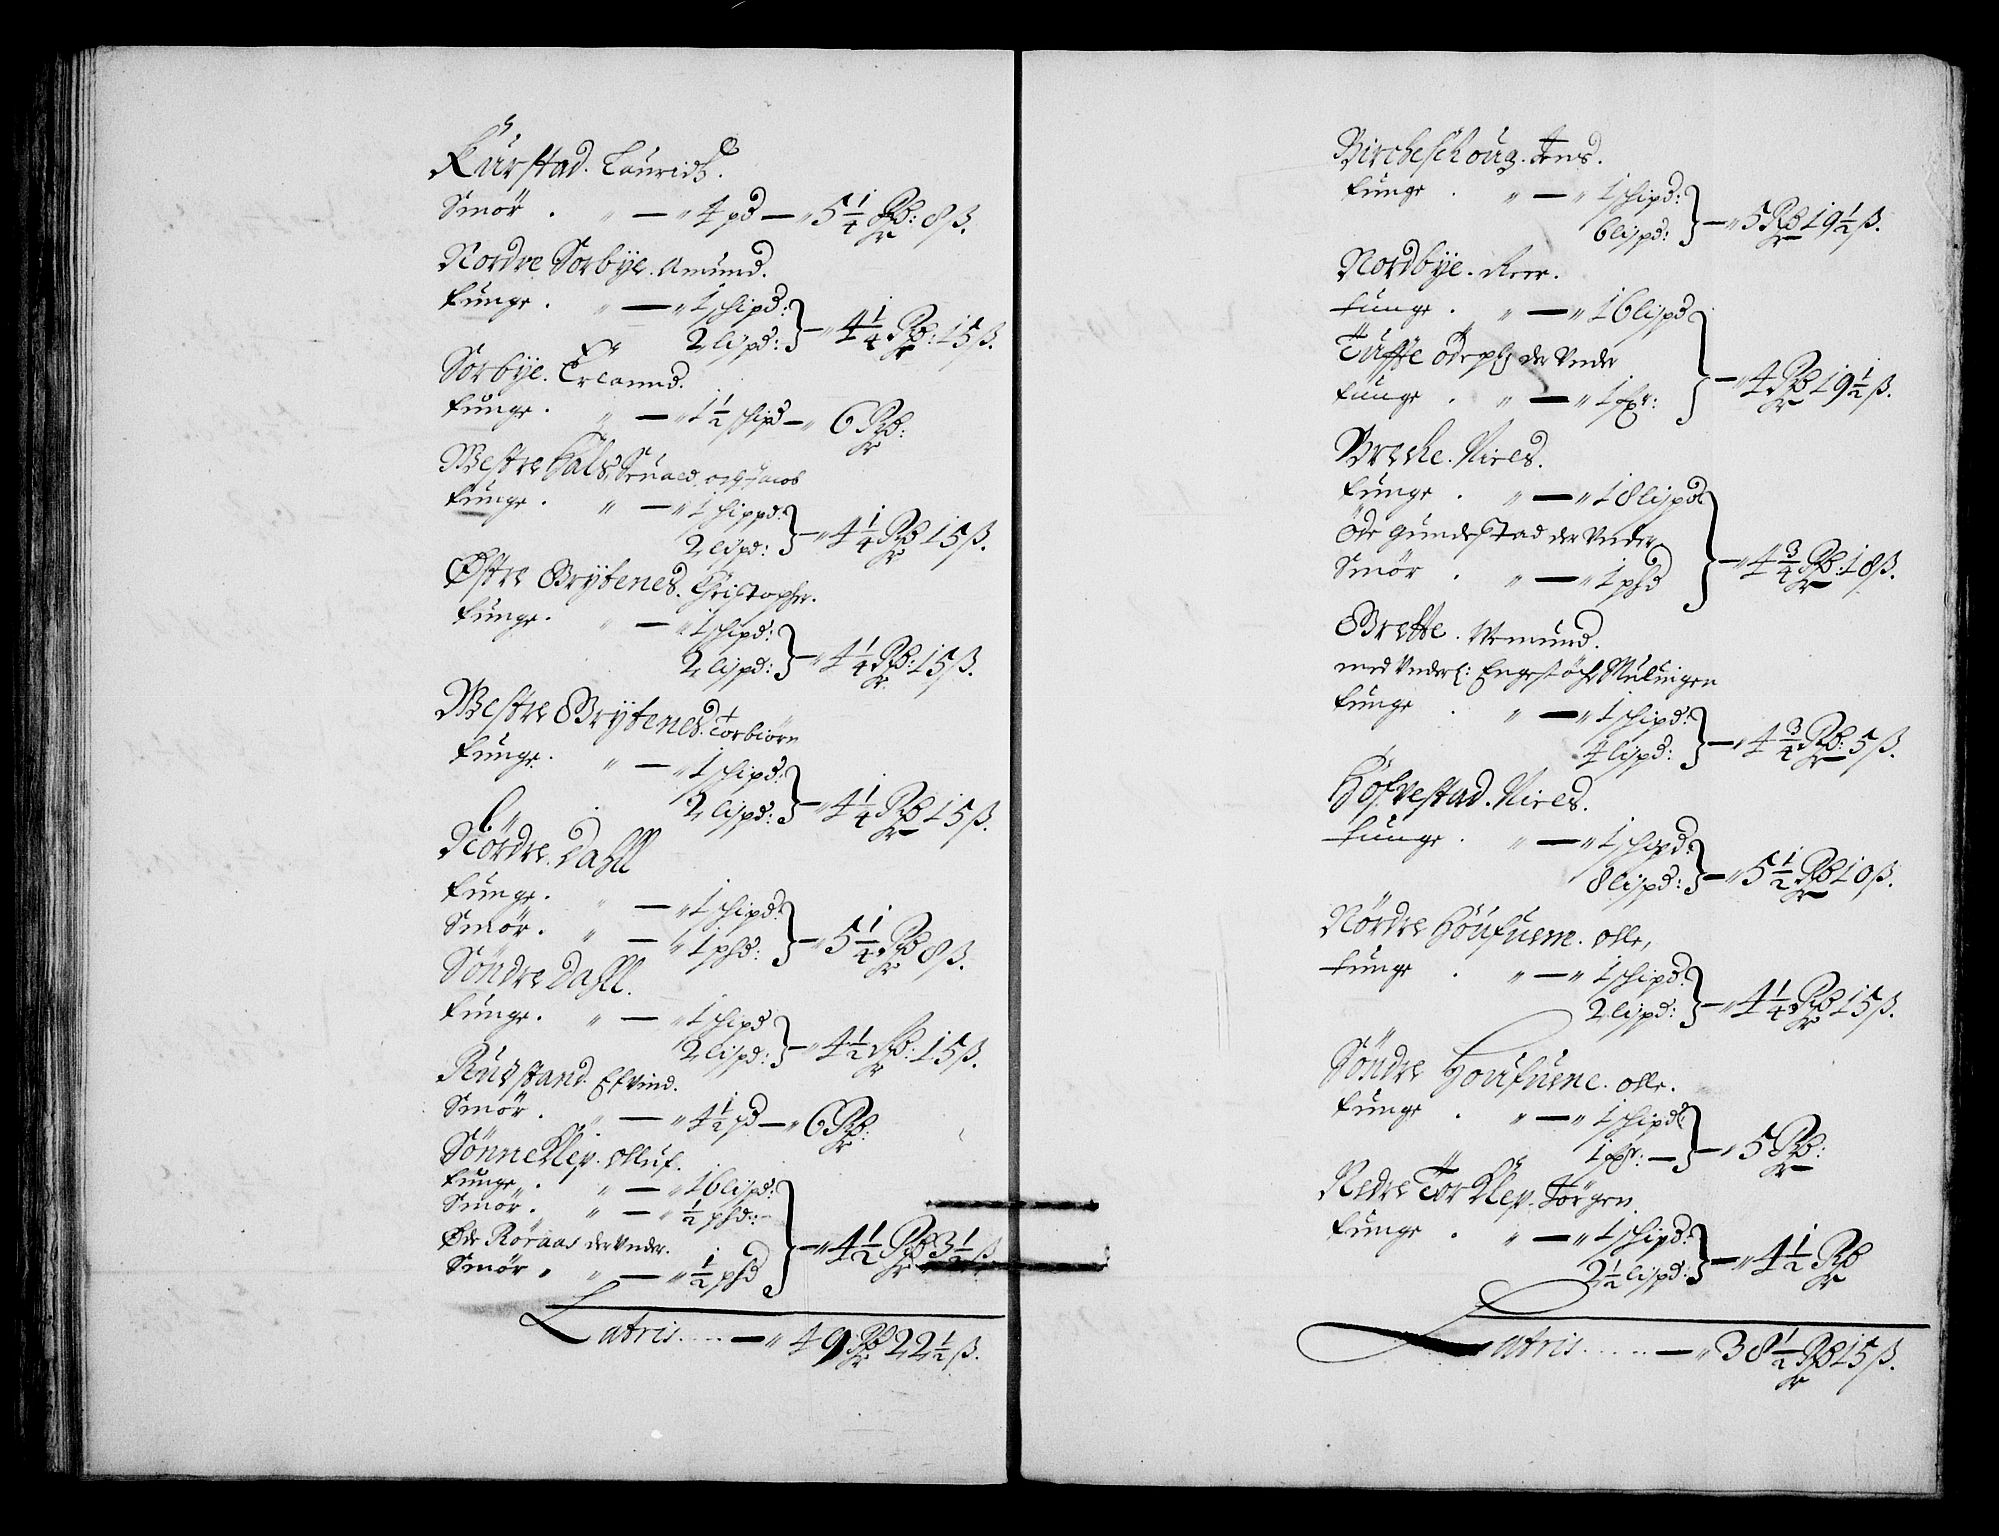 Rürstad. Lauridtz.
Smör . „ — „ 4 pd — „ 5 1/4 Rd: 8 ß.
Nordre Sorbÿe. Amund.
tunge . „ — „ 1 schipd:
2 lispd: } — „ 4 1/4 Rd: 15 ß.
Sorbÿe. Erland.
tunge . „ — „ 1 1/2 schipd — „ 6 Rd:
Westre Hals, og Jacob
tunge . „ — „ 1 schippd:
2 lispd: } — „ 4 1/4 Rd 15 ß.
Østre Brÿtenes. Christopher.
tunge . „ — „ 1 schipd:
2 lispd: } — „ 4 1/4 Rd: 15 ß.
Westre Brÿtenes. Torbiörn
tunge . „ — „ 1 schipd:
2 lispd: } — „ 4 1/4 Rd 15 ß.
Nordre. Dahll
tunge . „ — „ 1 schipd:
Smör . „ — „ 1 phd: } — „ 5 1/4 Rd 8 ß.
Söndre Dahll.
tunge . „ — „ 1 schipd
2 lispd: } — „ 4 1/2 Rd: 15 ß.
Rudstand. Efvind.
Smör . „ — „ 4 1/2 pd — „ 6 Rd:
Sönneklep. Olluf.
tunge . „ — „ 16 lispd:
Smör . „ — „ 1/2 phd:
Øde Röraas der Vnder.
Smör . „ — „ 1/2 phd } — „ 4 1/2 Rd 3 1/2 ß
Latris ..... — „ 49 Rd 22 1/2 ß.
Bircheschoug. Jens.
tunge . „ — „ 1 schipd:
6 lispd: } — „ 5 Rd 19 1/2 ß.
Nordbÿe. Reer.
tunge . „ — „ 16 lispd
Tuffte öde der Vnder
tunge . „ — „ 1 } — „ 4 Rd 19 1/2 ß.
Breche. Niels.
tunge . „ — „ 18 lispd
Öde Gundestad der Vnder
Smör . „ — „ 1 phd } — „ 4 3/4 Rd: 18 ß.
Brette. Wemund.
med Vnderl: Mulingen
tunge . „ — „ 1 schipd:
4 lispd: } — „ 4 3/4 Rd: 5 ß.
Höfvestad. Niels.
tunge . „ — „ 1 schipd:
8 lispd: } — „ 5 1/2 Rd 10 ß.
Nördre Höufuene. Olle,
tunge . „ — „ 1 schipd:
2 lispd: } — „ 4 1/4 Rd 15 ß.
Söndre Houfuene. Olle.
tunge . „ — „ 1 schipd:
1 — } — „ 5 Rd:
Nedre Torklep. Jörgen.
tunge . „ — „ 1 schipd:
2 1/2 lispd: } — „ 4 1/2 Rd
Latris ..... — „ 38 1/2 Rd 15 ß.